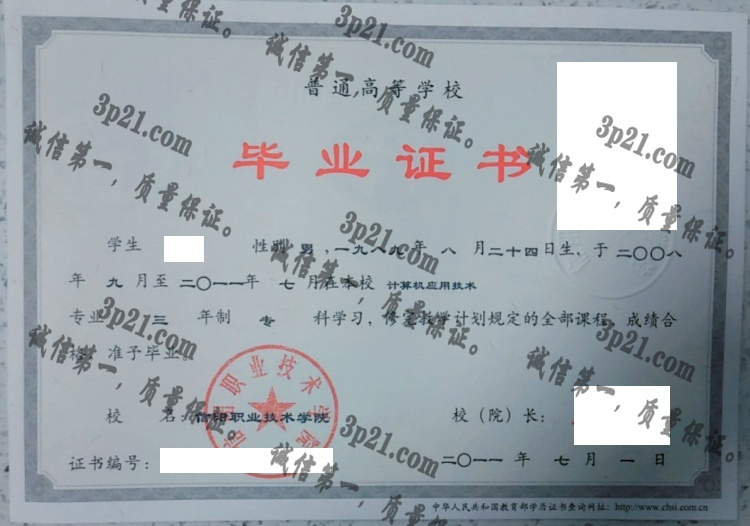 普通高等学校
毕业证书
学生 性别 男，一九八九年 八 月二十四日生，于二〇〇八
年 九 月至二〇一一年 七 月在本校 计算机应用技术
专业 三 年制 专 科学习，修完教学计划规定的全部课程，成绩合
格，准予毕业。
校 名：信阳职业技术学院 校（院）长：
证书编号： 二〇一一 年 七 月 一 日
中华人民共和国教育部学历证书查询网址：http://www.chsi.com.cn
职业技术学院
3p21.com
诚信第一，质量保证。
3p21.com
诚信第一，质量保证。
3p21.com
诚信第一，质量保证。
3p21.com
诚信第一，质量保证。
3p21.com
诚信第一，质量保证。
3p21.com
诚信第一，质量保证。
3p21.com
诚信第一，质量保证。
3p21.com